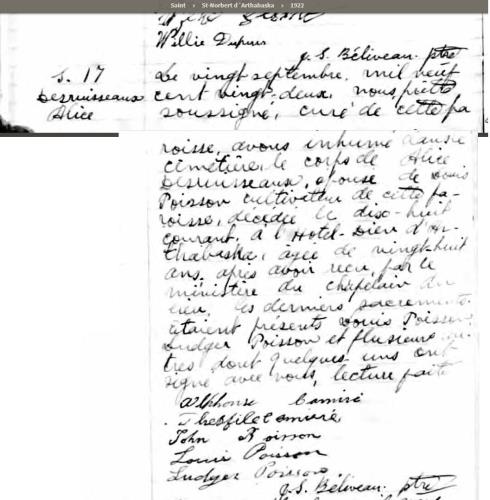 Saint › St-Norbert d'Arthabaska › 1922
Willie Dupuis
J. S. Béliveau ptre
S. 17
Desruisseaux
Alice
Le vingt septembre, mil neuf
cent vingt-deux, nous prêtre
soussigné, curé de cette pa
roisse, avons inhumé dans le
cimetière, le corps de Alice
Desruisseaux, épouse de Louis
Poisson cultivateur de cette pa-
roisse, décédée le dix-huit
courant, à l'Hôtel-Dieu d'Ar-
thabaska, agée de vingt-huit
ans, après avoir reçu, par le
ministère du chapelain du
lieu, les derniers sacrements.
étaient présents Louis Poisson
Ludger Poisson et plusieurs au-
tres dont quelques-uns ont
signé avec nous, lecture faite
Alphonse Camiré
Théofile Camiré
John Poisson
Louis Poisson
Ludger Poisson
J. S. Béliveau ptre